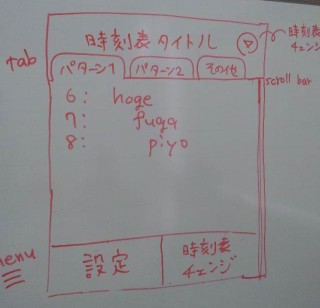 時刻表タイトル
時刻表
チェンジ
tab
パターン1 パターン2 その他
scroll bar
6: hoge
7: fuga
8: piyo
menu
設定
時刻表
チェンジ